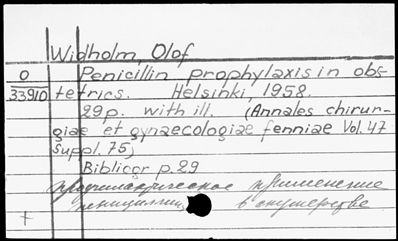 Widholm, Olof
O Penicillin prophylaxis in obs-
33910 tetrics. Helsinki, 1958.
29p. with ill. (Annales chirur-
giae et gynaecologiae fenniae Vol. 47
Suppl. 75)
Bibliogr p. 29
профилактическое применение
пенициллина в акушерстве
+